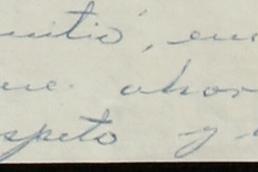 mitió, en
ue. ahor
speto y